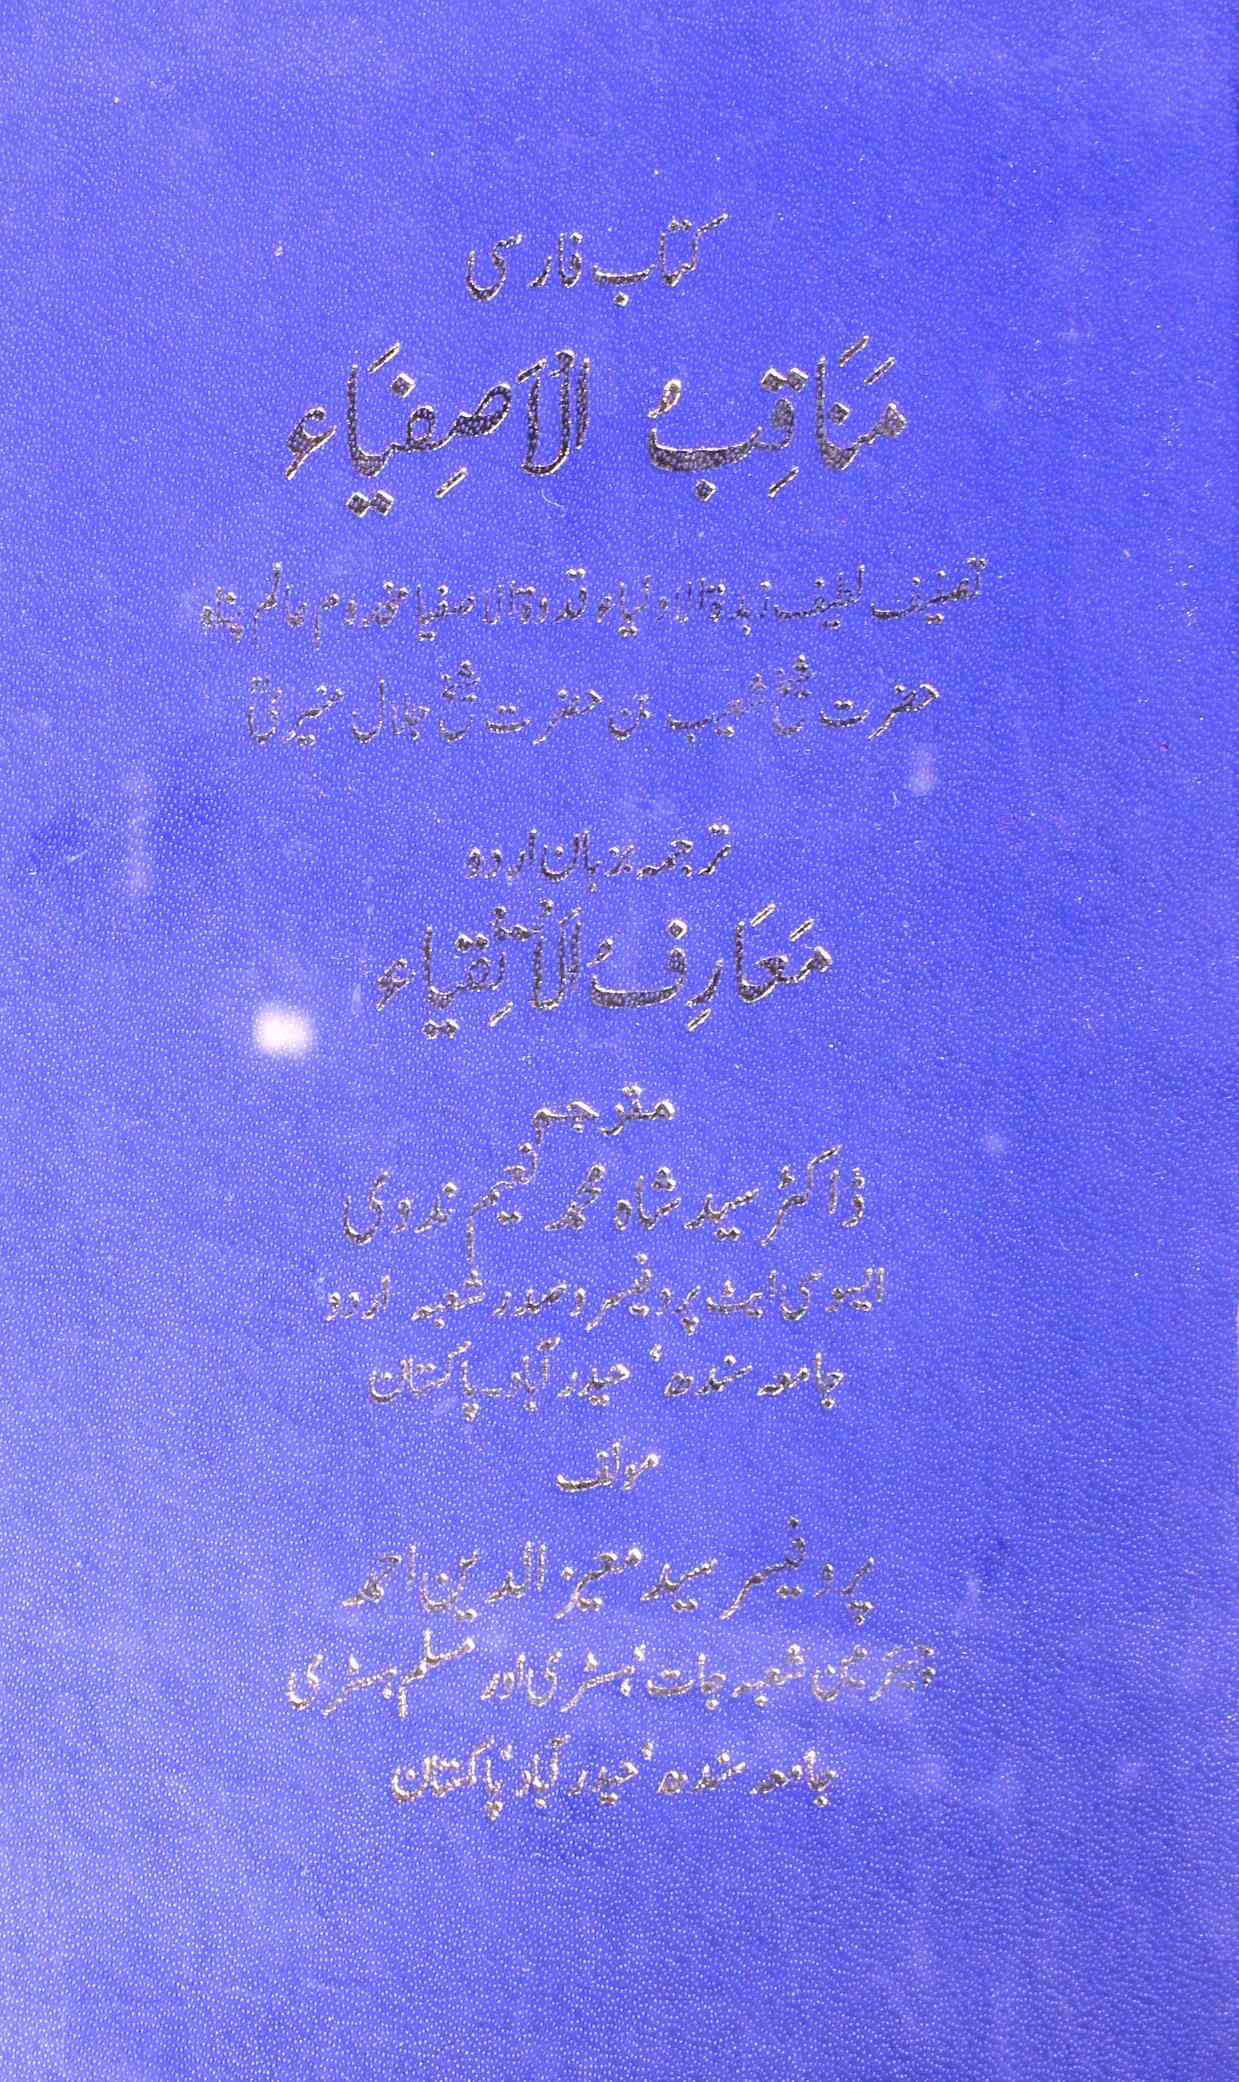 کتاب فارسی
مَنَاقِبُ الْاَصفِیَاء
تصنیف لطیف زبدۃ الاولیاء قدوۃ الاصفیا مخدوم عالم پناہ
حضرت شیخ شعیب بن حضرت شیخ جلال منیریؒ
ترجمہ بزبان اردو
مَعَارِفُ الْاَتْقِیَاء
مترجم
ڈاکٹر سید شاہ محمد نعیم ندوی
ایسوی ایٹ پروفیسر و صدر شعبہ اردو
جامعہ سندھ، حیدر آباد۔ پاکستان
مولف
پروفیسر سید معیز الدین احمد
چیئرمین شعبہ جات ہسٹری اور مسلم ہسٹری
جامعہ سندھ، حیدر آباد، پاکستان